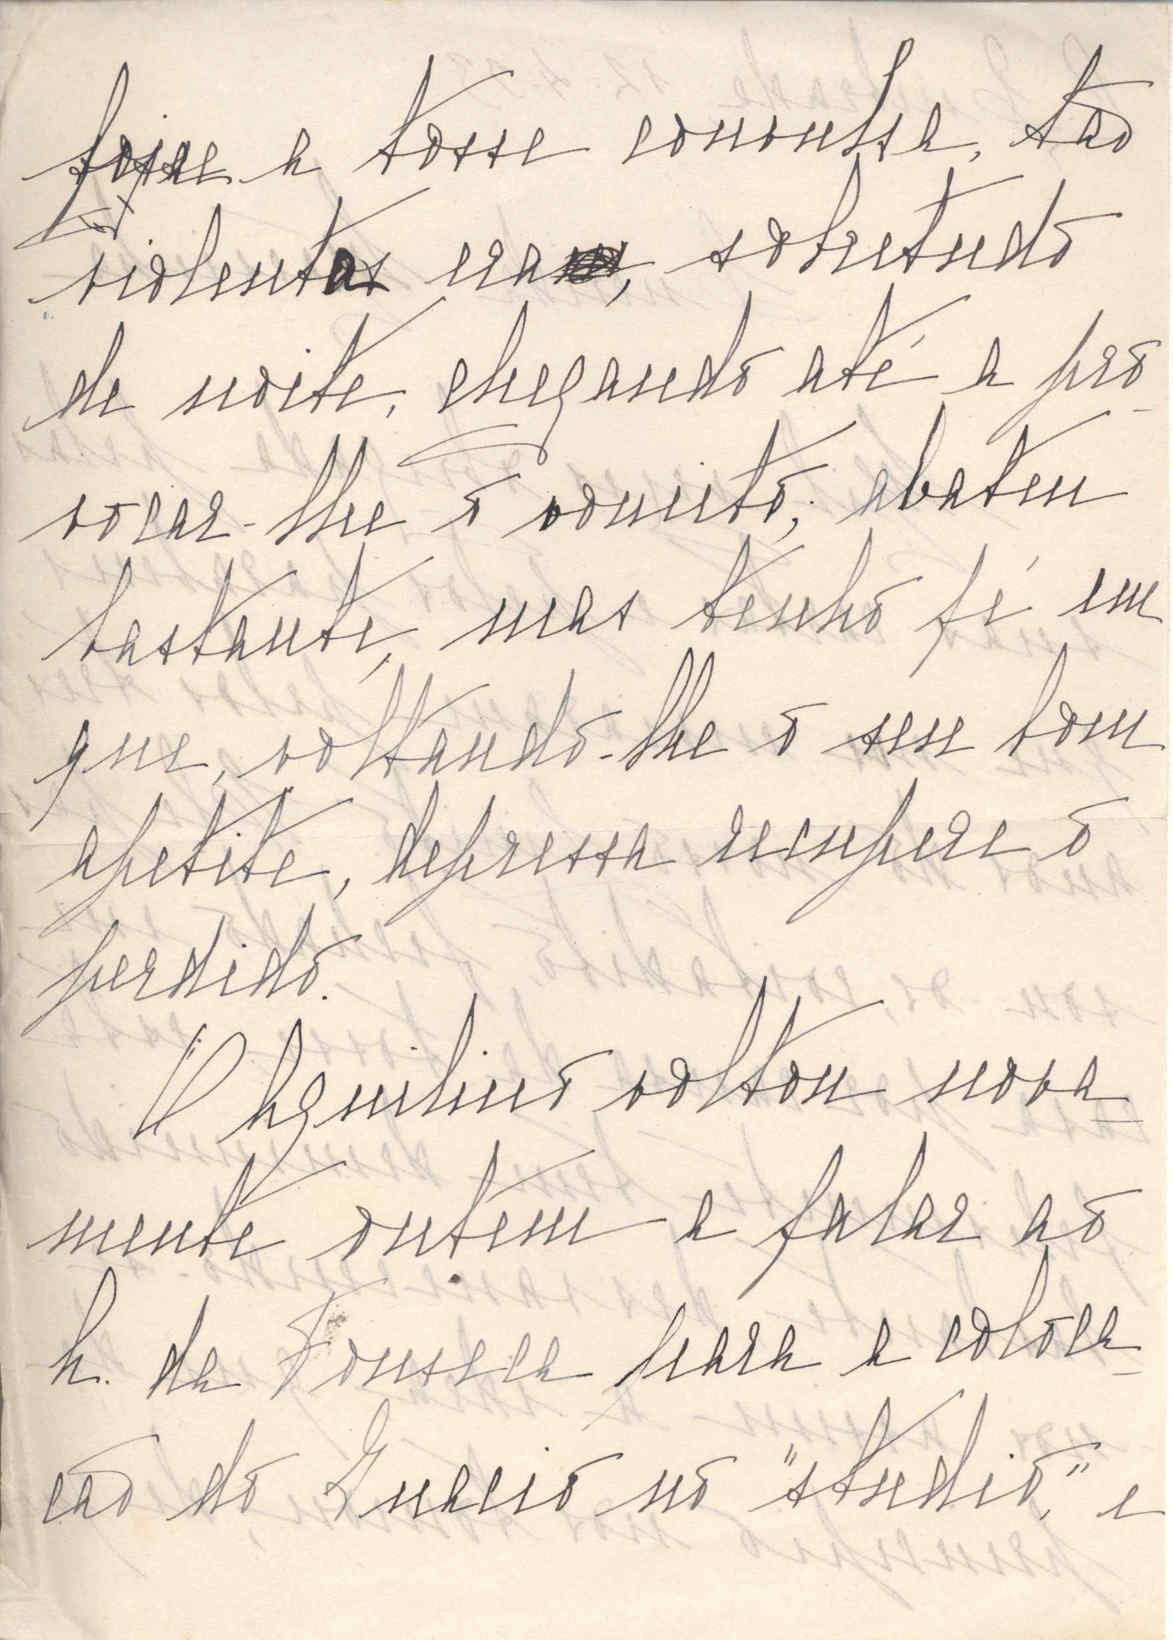 fosse a tosse convulsa, tão
violentas eram, sobretudo
de noite, chegando até a pro-
vocar-lhe o vomito; abateu
bastante, mas tenho fé em
que, voltando-lhe o seu bom
apetite, depressa recupere o
perdido.
O Aquilino voltou nova-
mente ontem a falar ao
h. da Fonseca para a coloca-
ção do Ignacio no "studio," e